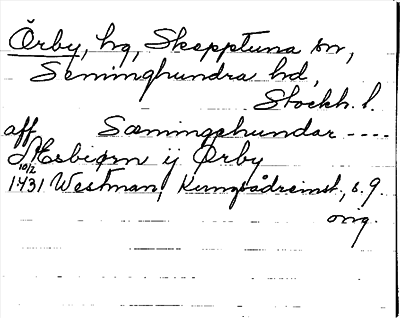 Örby, hg, Skepptuna sn,
Seminghundra hd,
Stockh. l.
aff Sæmingehundar ----
Æsbiørn ij Ørby
10/2
1431 Westman, Kungsådreinst., s. 9.
orig.